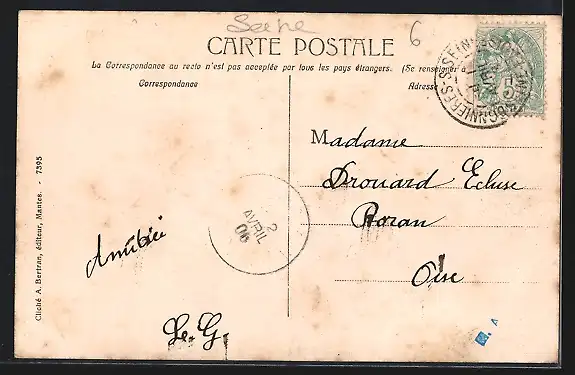 Seine
6
CARTE POSTALE
La Correspondance au recto n'est pas acceptée par tous les pays étrangers. (Se renseigner à
Correspondance
Adresse
Madame
Drouard Ecluse
Boran
Oise
2
AVRIL
06
Amitiés
Le. G.
Cliché A. Bertran, éditeur, Mantes. - 7395